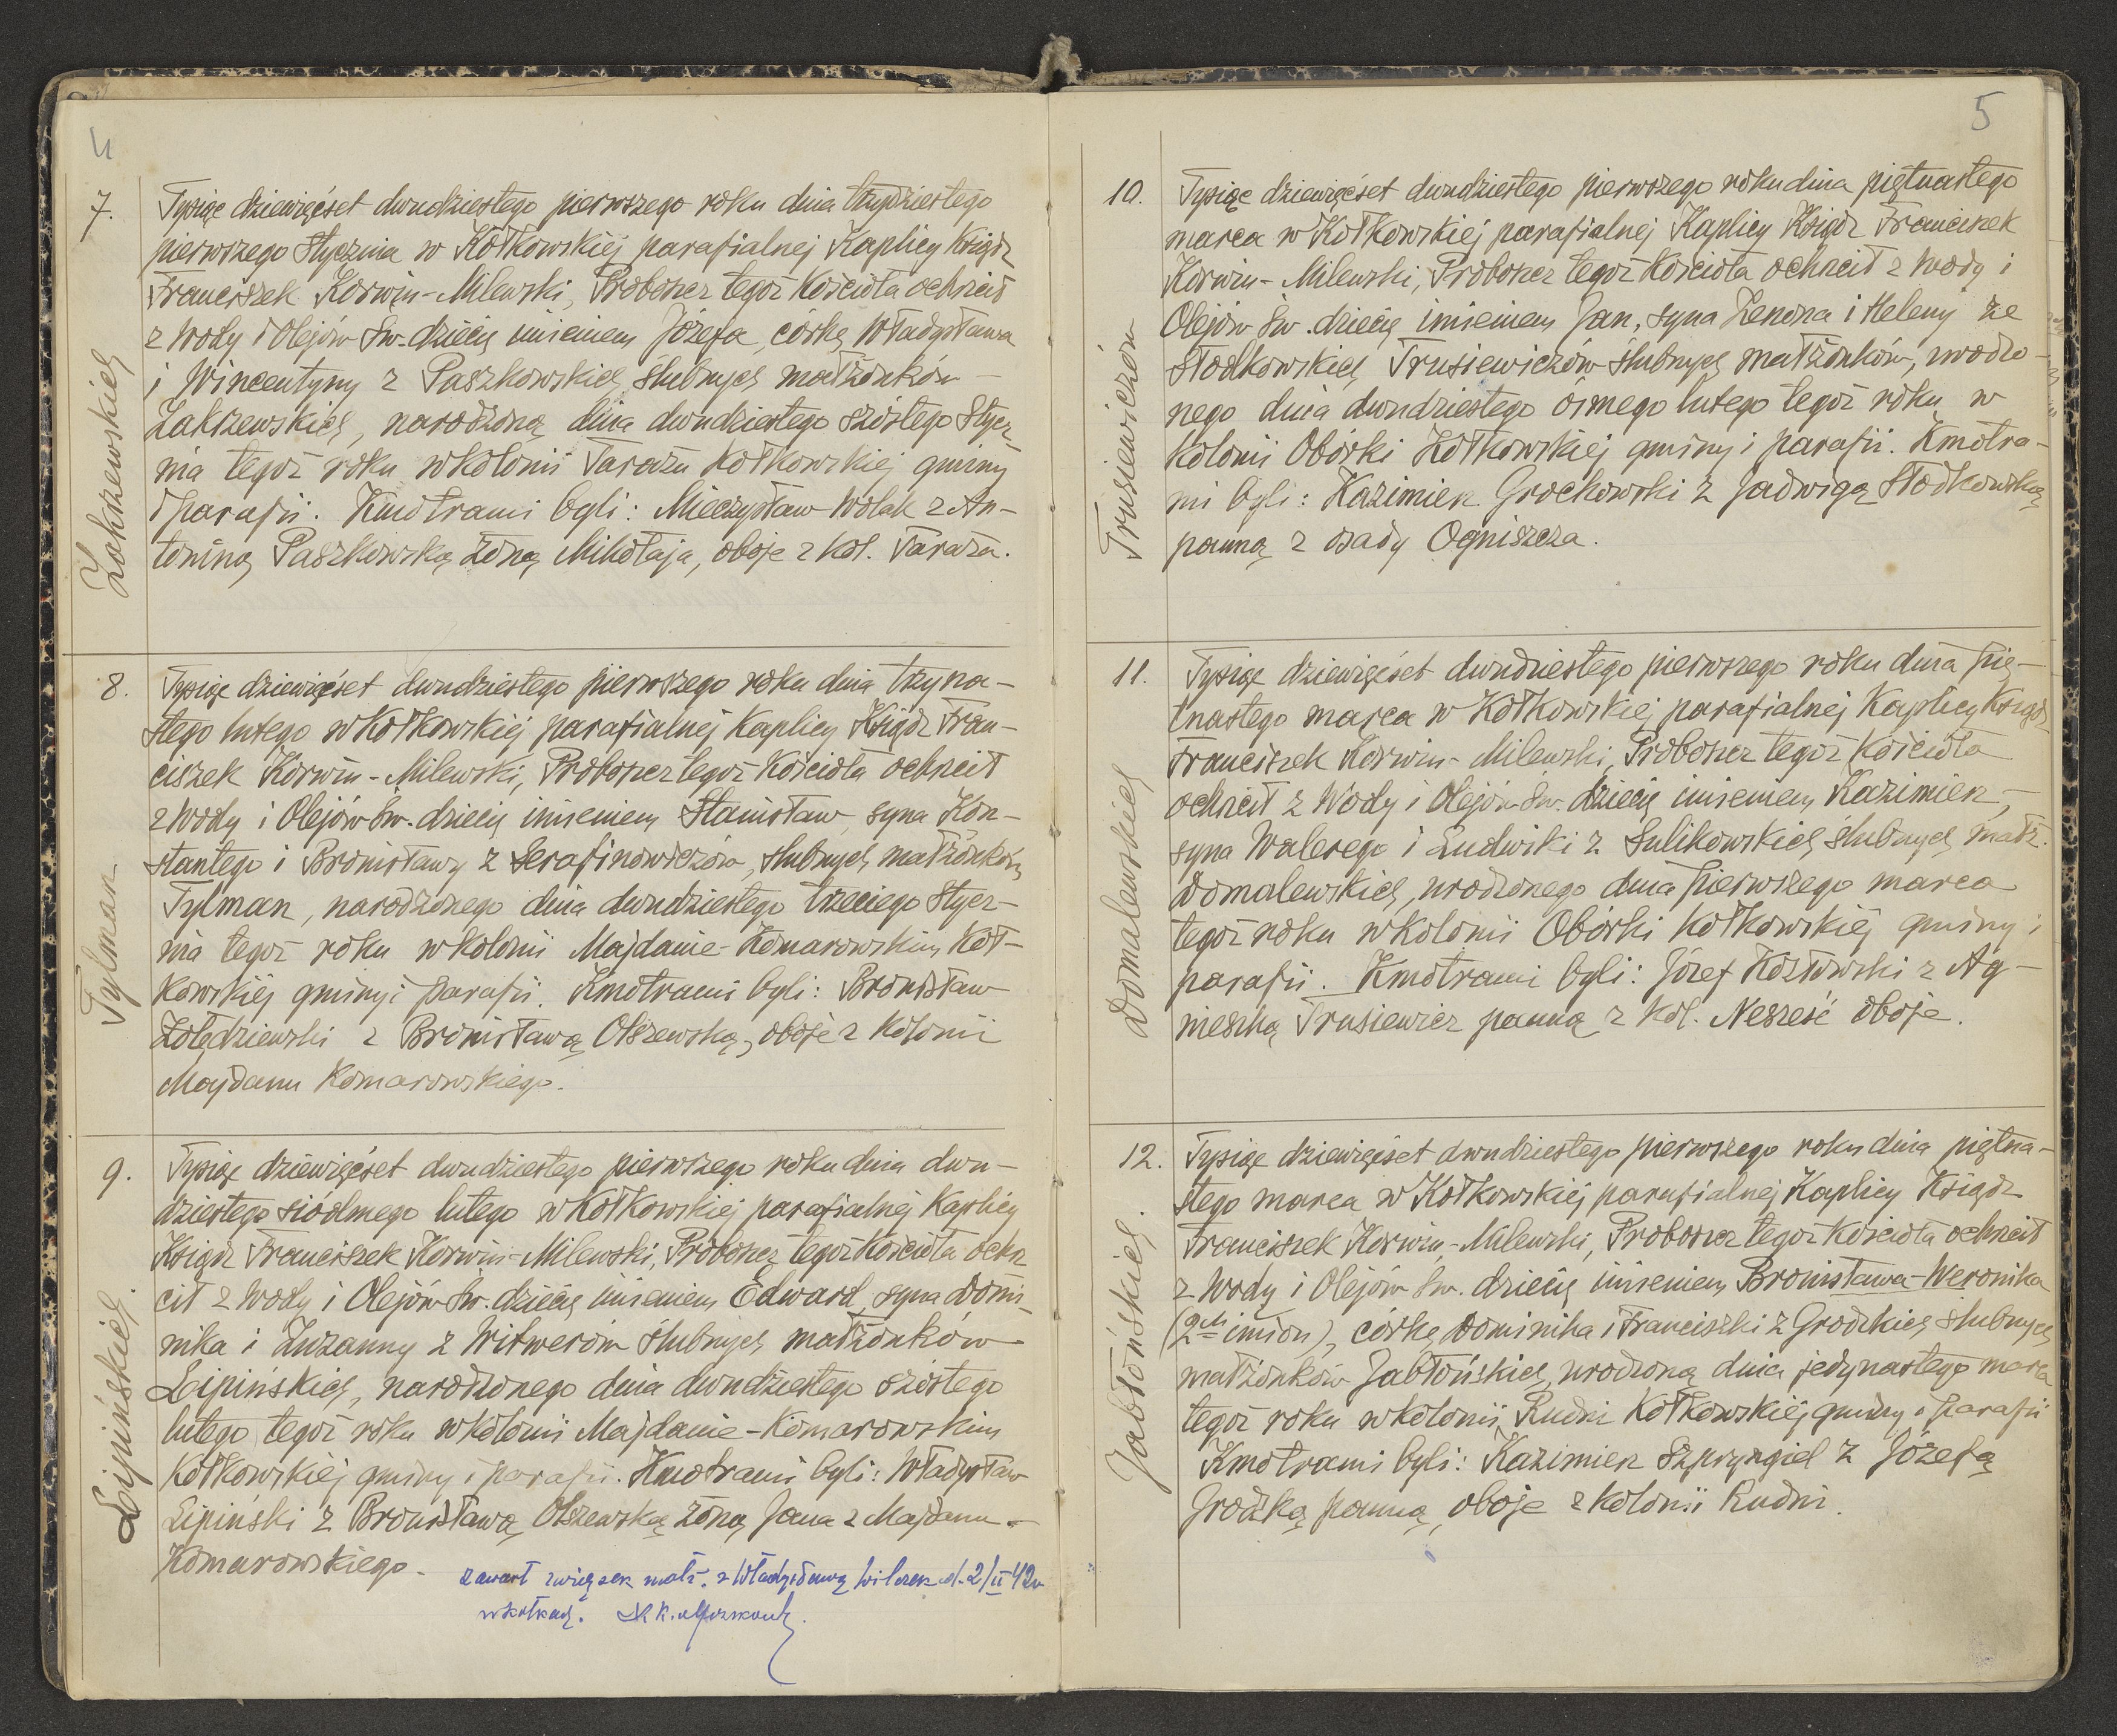 4
7.
Zakrzewskich
Tysiąc dziewięćset dwudziestego pierwszego roku dnia trzydziestego
pierwszego Stycznia w Kołkowskiej parafialnej Kaplicy Ksiądz
Franciszek Korwin-Milewski, Proboszcz tegoż Kościoła ochrzcił
z Wody i Olejów Św. dziecię imieniem Józefa, córkę Władysława
i Wincentyny z Paszkowskich ślubnych małżonków
Zakrzewskich, narodzoną dnia dwudziestego szóstego Stycz-
nia tegoż roku w kolonii Tarażu Kołkowskiej gminy
i parafii. Kmotrami byli: Mieczysław Wolak z An-
toniną Paszkowską żoną Mikołaja, oboje z kol. Taraża.
8.
Tylman
Tysiąc dziewięćset dwudziestego pierwszego roku dnia trzyna-
stego lutego w Kołkowskiej parafialnej Kaplicy Ksiądz Fran-
ciszek Korwin-Milewski, Proboszcz tegoż Kościoła ochrzcił
z Wody i Olejów Św. dziecię imieniem Stanisław, syna Kon-
stantego i Bronisławy z Serafinowiczów, ślubnych małżonków
Tylman, narodzonego dnia dwudziestego trzeciego Stycz-
nia tegoż roku w kolonii Majdanie-Komarowskim Koł-
kowskiej gminy i parafii. Kmotrami byli: Bronisław
Żołędziewski z Bronisławą Olszewską, oboje z kolonii
Majdanu Komarowskiego.
9.
Lipińskich.
Tysiąc dziewięćset dwudziestego pierwszego roku dnia dwu-
dziestego siódmego lutego w Kołkowskiej parafialnej Kaplicy
Ksiądz Franciszek Korwin-Milewski, Proboszcz tegoż Kościoła ochrz
cił z Wody i Olejów Św. dziecię imieniem Edward, syna Domi-
nika i Zuzanny z Witwerów ślubnych małżonków
Lipińskich, narodzonego dnia dwudziestego szóstego
lutego tegoż roku w kolonii Majdanie-Komarowskim
Kołkowskiej gminy i parafii. Kmotrami byli: Władysław
Lipiński z Bronisławą Olszewską żoną Jana z Majdanu-
Komarowskiego.
zawarł związek małż. z Władysławą Wilczek d. 2/II 42 r
w Kołkach.
5
10.
Trusiewiczów
Tysiąc dziewięćset dwudziestego pierwszego roku dnia piętnastego
marca w Kołkowskiej parafialnej Kaplicy Ksiądz Franciszek
Korwin-Milewski, Proboszcz tegoż Kościoła ochrzcił z Wody i
Olejów Św. dziecię imieniem Jan, syna Zenona i Heleny ze
Słodkowskich Trusiewiczów ślubnych małżonków, urodzo-
nego dnia dwudziestego ósmego lutego tegoż roku w
kolonii Obórki Kołkowskiej gminy i parafii. Kmotra-
mi byli: Kazimierz Grochowski z Jadwigą Słodkowską
panną z osady Ogniszcza.
11.
Domalewskich
Tysiąc dziewięćset dwudziestego pierwszego roku dnia pię-
tnastego marca w Kołkowskiej parafialnej Kaplicy Ksiądz
Franciszek Korwin-Milewski, Proboszcz tegoż Kościoła
ochrzcił z Wody i Olejów Św. dziecię imieniem Kazimierz,
syna Walerego i Ludwiki z Sulikowskich ślubnych małż.
Domalewskich, urodzonego dnia pierwszego marca
tegoż roku w kolonii Obórki Kołkowskiej gminy i
parafii. Kmotrami byli: Józef Kozłowski z Ag-
nieszką Trusiewicz panną z kol. Neszesć oboje.
12.
Jabłońskich.
Tysiąc dziewięćset dwudziestego pierwszego roku dnia piętna-
stego marca w Kołkowskiej parafialnej Kaplicy Ksiądz
Franciszek Korwin-Milewski, Proboszcz tegoż Kościoła ochrzcił
z Wody i Olejów Św. dziecię imieniem Bronisława-Weronika
(2ch imion), córkę Dominika i Franciszki z Grodzkich ślubnych
małżonków Jabłońskich, urodzoną dnia jedynastego marca
tegoż roku w kolonii Rudni Kołkowskiej gminy i parafii
Kmotrami byli: Kazimierz Szpryngiel z Józefą
Grodzką panną, oboje z kolonii Rudni.